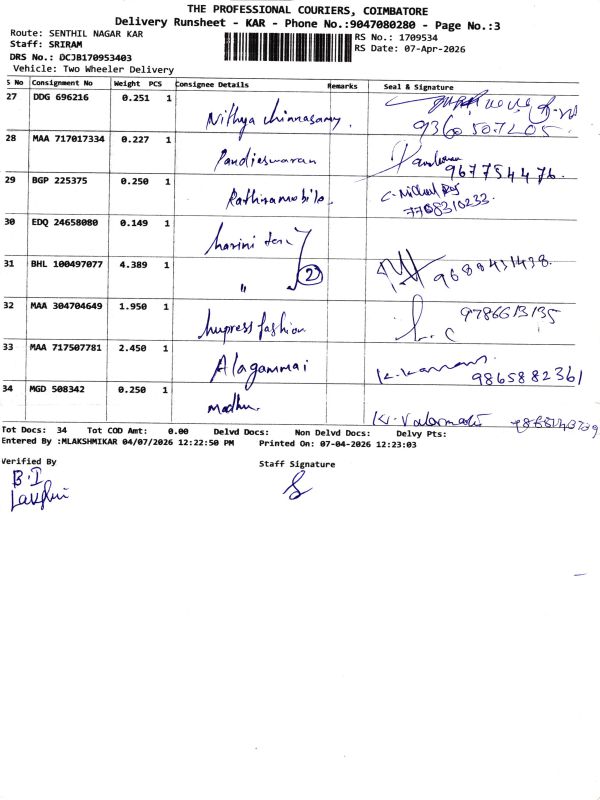 THE PROFESSIONAL COURIERS, COIMBATORE
Delivery Runsheet - KAR - Phone No.:9047080280 - Page No.:3
Route: SENTHIL NAGAR KAR
RS No.: 1709534
Staff: SRIRAM
RS Date: 07-Apr-2026
DRS No.: DCJB170953403
Vehicle: Two Wheeler Delivery
S No Consignment No Weight PCS Consignee Details Remarks Seal & Signature
27 DDG 696216 0.251 1 Nithya Chinnasamy.
9360507205
28 MAA 717017334 0.227 1 Pandieswaran
967754476.
29 BGP 225375 0.250 1 Rathinamobile. C. Michael Raj
7708310233.
30 EDQ 24658080 0.149 1 harini
31 BHL 100497077 4.389 1 " 2 9688431438.
32 MAA 304704649 1.950 1 fashion 9786613135
33 MAA 717507781 2.450 1 Alagammai K. Kannan
9865882361
34 MGD 508342 0.250 1 madhu.
Tot Docs: 34 Tot COD Amt: 0.00 Delvd Docs: Non Delvd Docs: Delvy Pts:
Entered By :MLAKSHMIKAR 04/07/2026 12:22:50 PM Printed On: 07-04-2026 12:23:03
Verified By Staff Signature
B.I